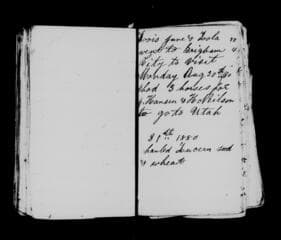 Lois Jane & Lola
went to Brigham
City to visit
Monday Aug 30th 80
shod 3 horses for
Hansen & Neilson
to go to Utah
31th 1880
hauled Lucern seed
& wheat